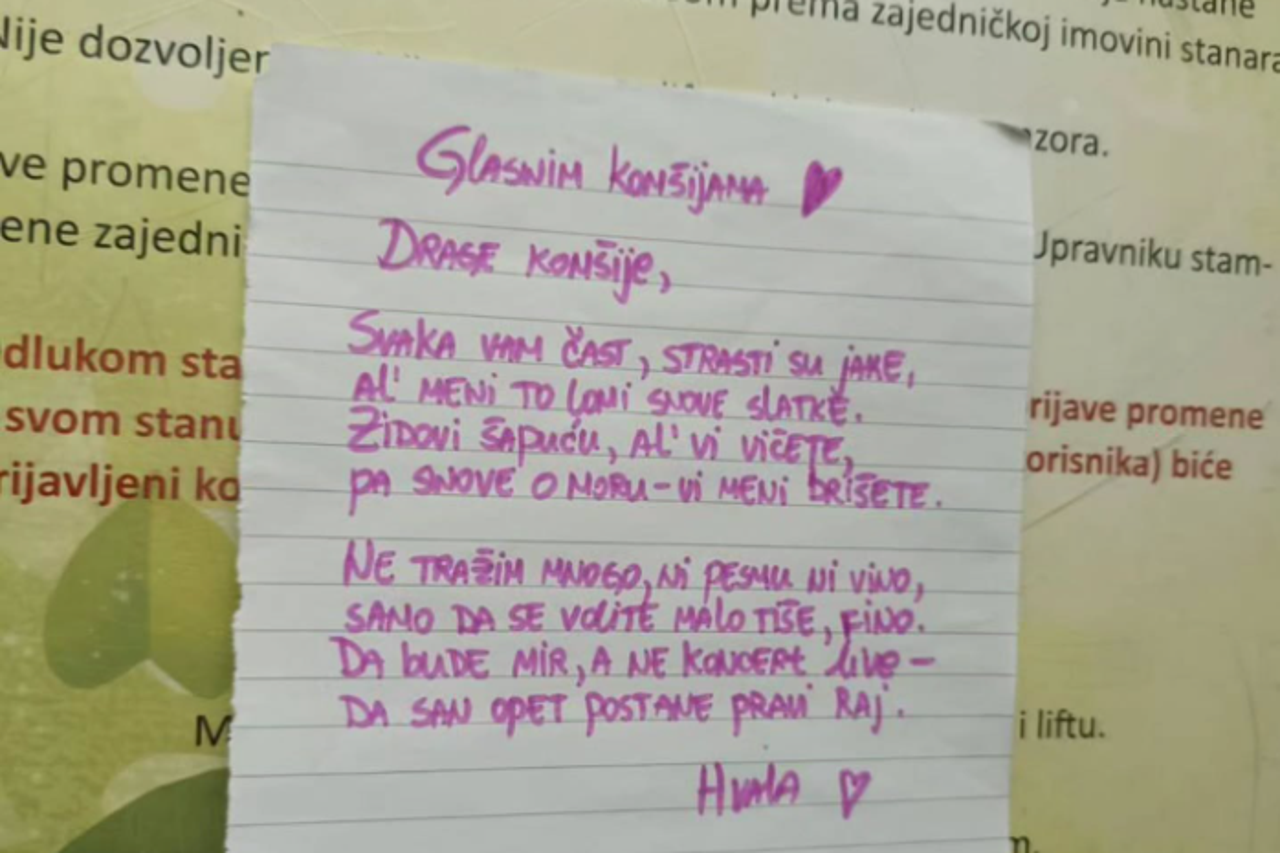 nastane
prema zajedničkoj imovini stanara
Nije dozvoljen
zora.
ve promene
ene zajedni
Upravniku stam-
dlukom sta
svom stanu
rijavljeni ko
rijave promene
orisnika) biće
M
i liftu.
m.
GLASNIM KONŠIJAMA ♥
DRAGE KONŠIJE,
SVAKA VAM ČAST, STRASTI SU JAKE,
AL' MENI TO LOMI SNOVE SLATKE.
ZIDOVI ŠAPUĆU, AL' VI VIČETE,
PA SNOVE O MORU - VI MENI BRIŠETE.
NE TRAŽIM MNOGO, NI PESMU NI VINO,
SAMO DA SE VOLITE MALO TIŠE, FINO.
DA BUDE MIR, A NE KONCERT live -
DA SAN OPET POSTANE PRAVI RAJ.
HVALA ♡